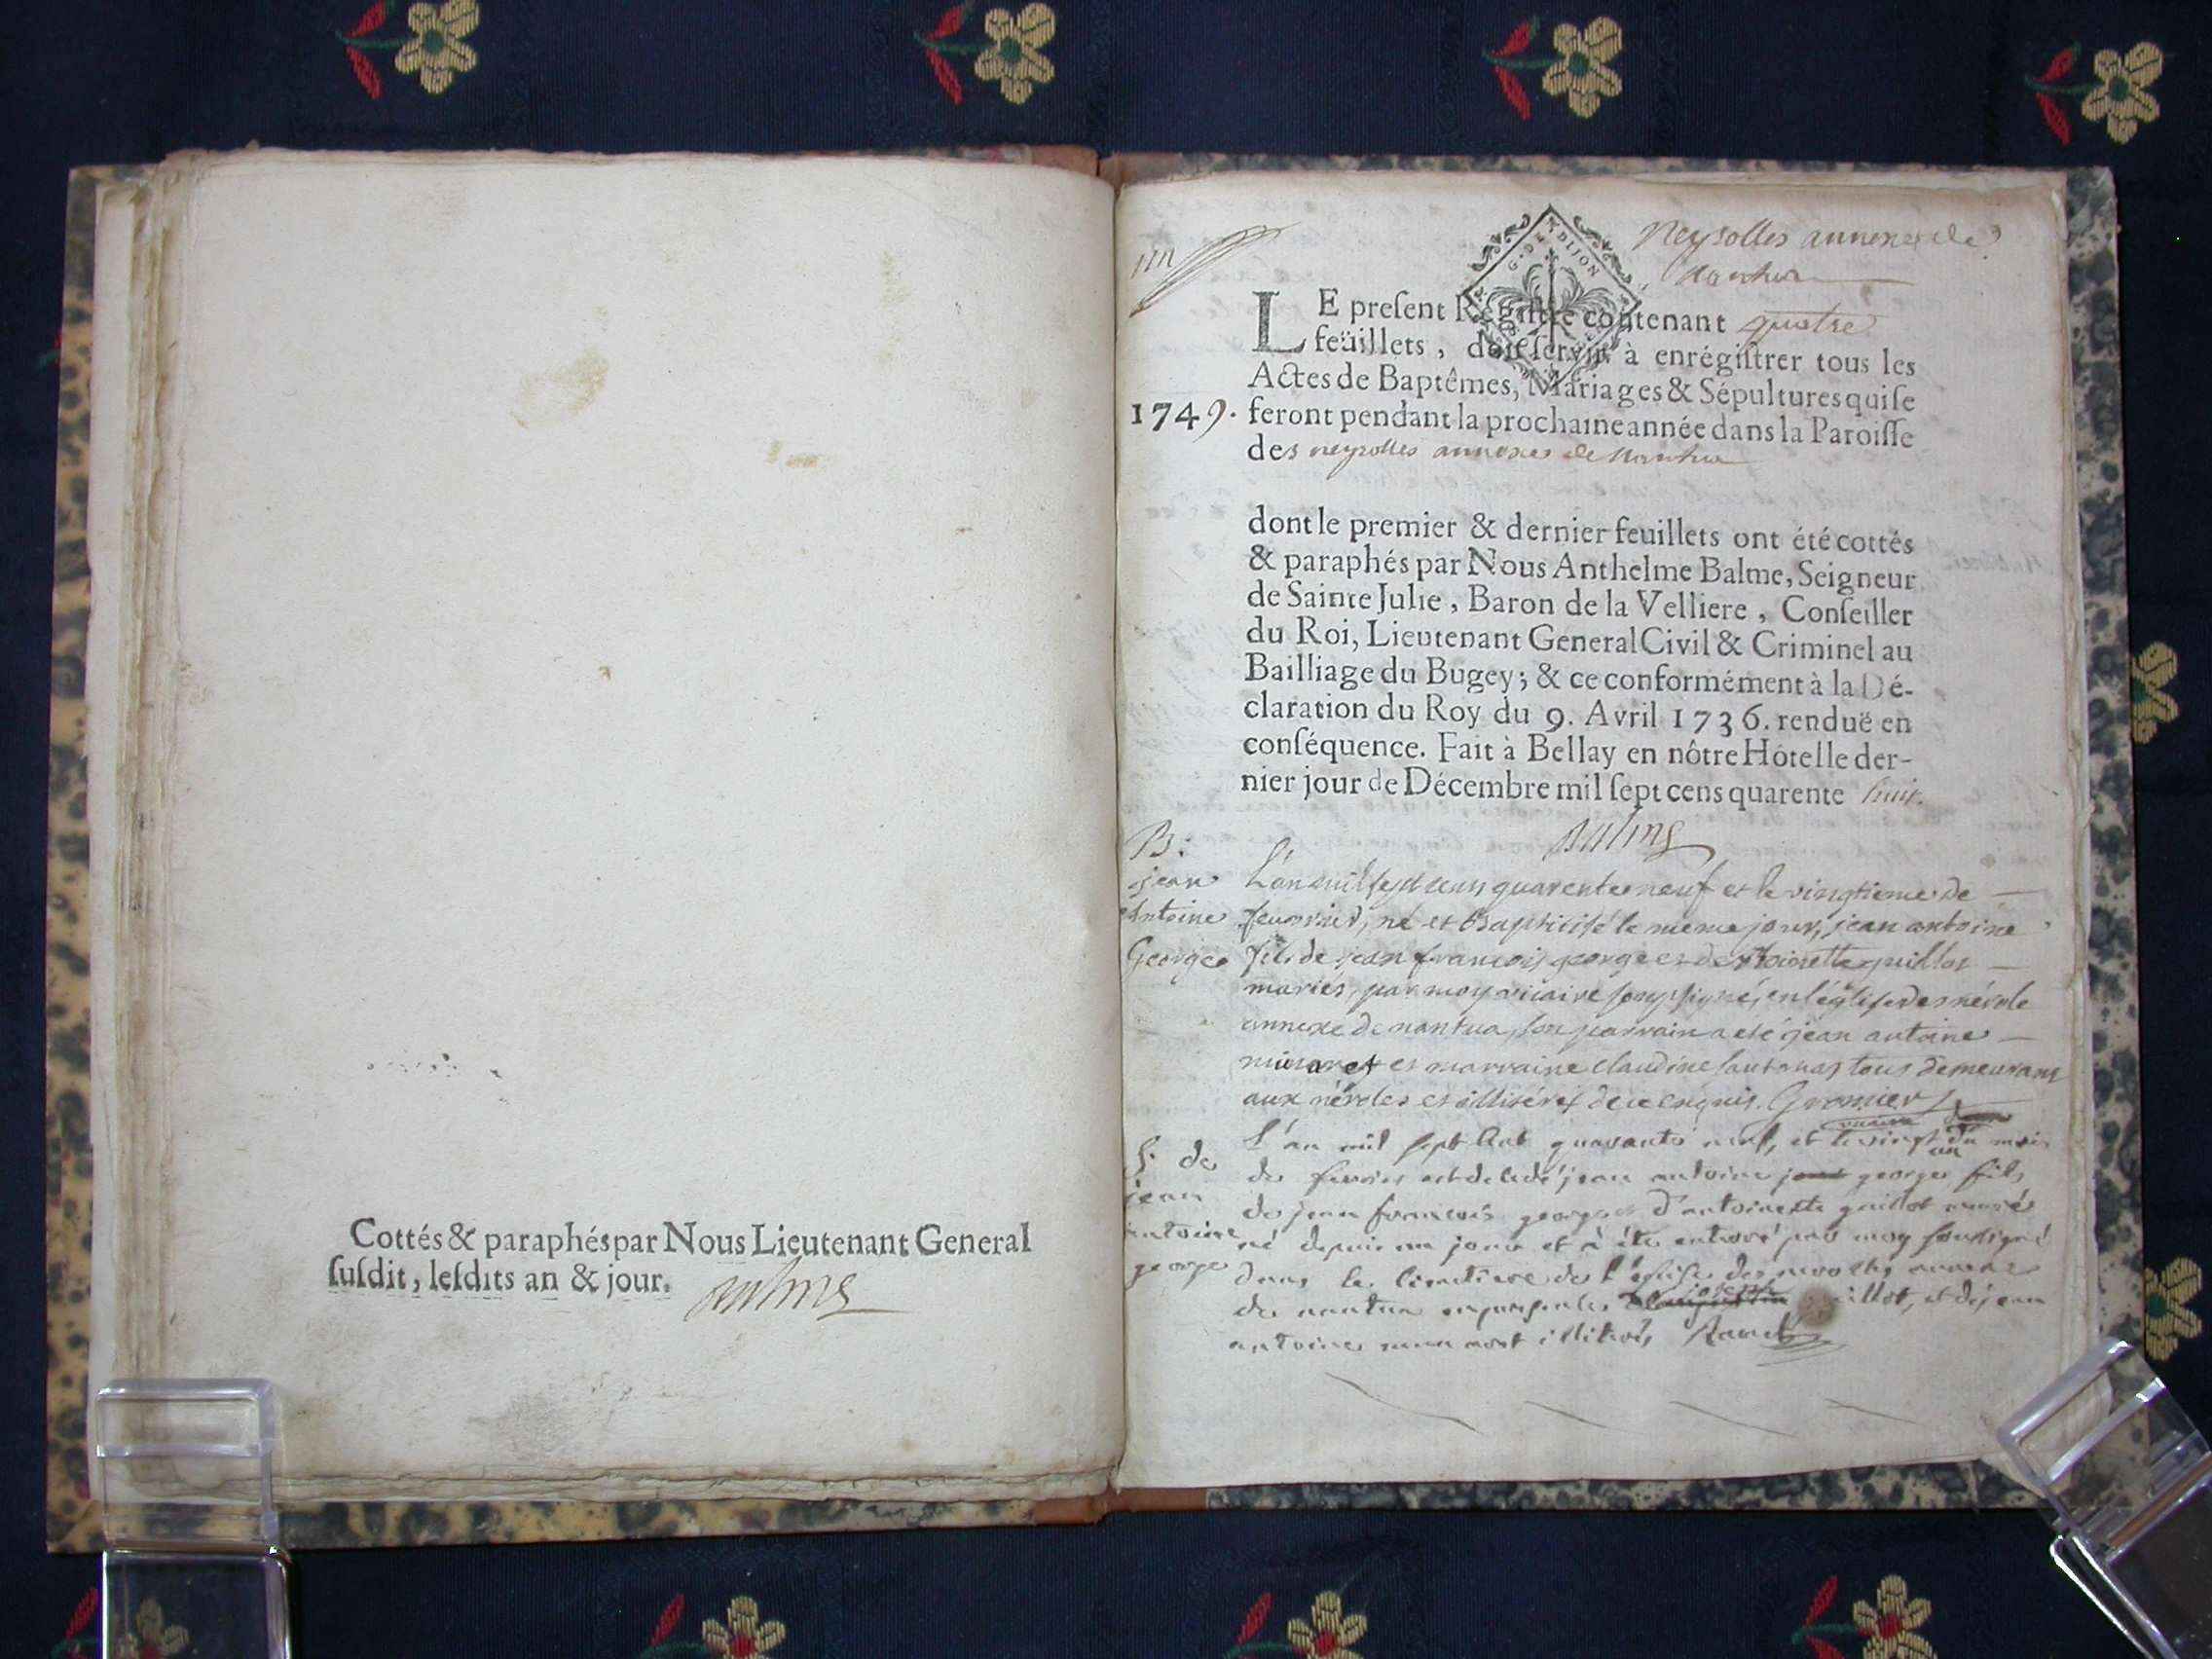 Cottés & paraphés par Nous Lieutenant General
ſuſdit, leſdits an & jour.
G. D E LION
Neyrolles annexe de
Nantua
LE preſent Régiſtre contenant quatre
feüillets, doit ſervir à enrégiſtrer tous les
Actes de Baptêmes, Mariages & Sépultures qui ſe
1749. feront pendant la prochaine année dans la Paroiſſe
des neyrolles annexe de Nantua
dont le premier & dernier feuillets ont été cottés
& paraphés par Nous Anthelme Balme, Seigneur
de Sainte Julie, Baron de la Velliere, Conſeiller
du Roi, Lieutenant General Civil & Criminel au
Bailliage du Bugey; & ce conformément à la Dé-
claration du Roy du 9. Avril 1736. renduë en
conſéquence. Fait à Bellay en nôtre Hôtel le der-
nier jour de Décembre mil ſept cens quarente huit.
Balme
B:
jean
Antoine
George
L'an mil sept cens quarente neuf et le vingtieme de
feuvrier, né et Baptisé le meme jour, jean antoine
fils de jean francois george et de toinette guillot
mariés, par moy vicaire soussigné, en l'église des nérole
annexe de nantua, son parrain a été jean antoine
et marraine claudine tous demeurans
aux néroles et illiterés de ce enquis. Gromier
vicaire
S. de
jean
antoine
george
L'an mil sept cent quarante neuf, et le vingt un du mois
de fevrier est decedé jean antoine george fils
de jean francois george et d'antoinette guillot mariés
né depuis un jour et a été enterré par moy soussigné
dans le cimetiere de l'église des annexe
de nantua en presence de joseph guillot, et de jean
antoine illiterés